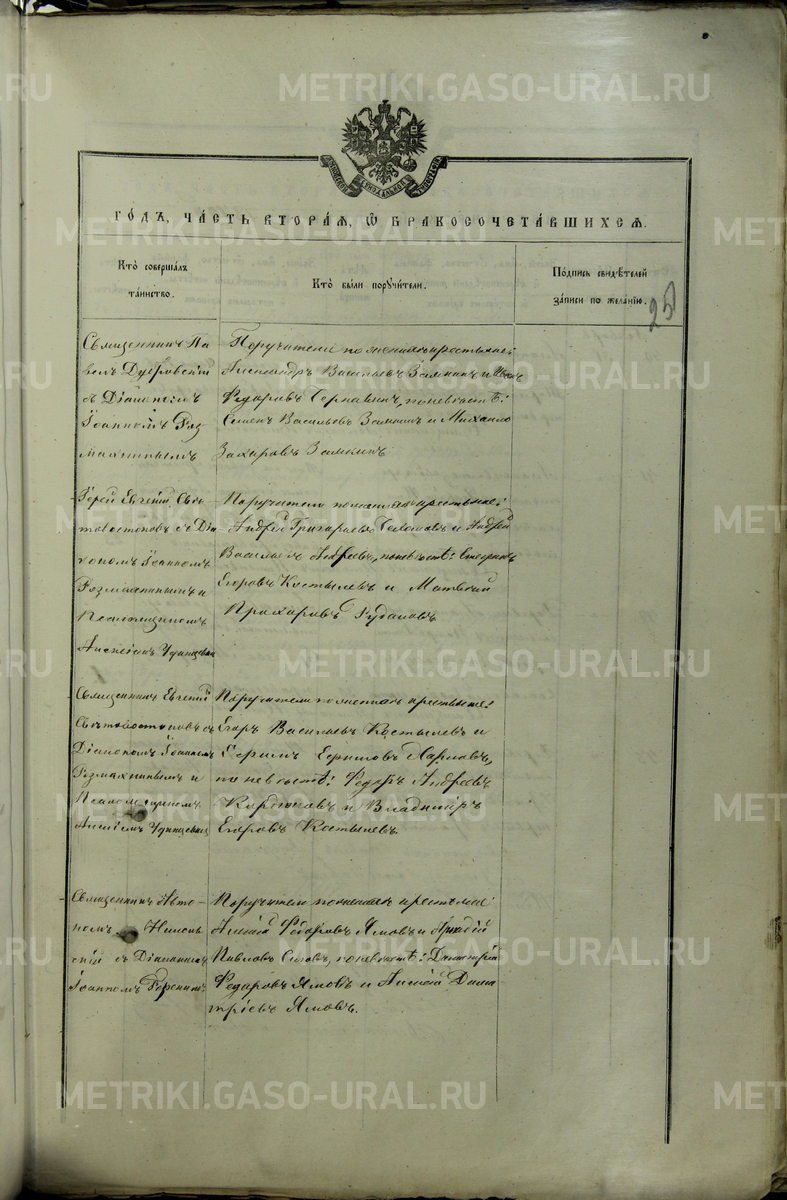 METRIKI.GASO-URAL.RU
ГОДЪ, ЧАСТЬ ВТОРАЯ, Ѡ БРАКОСОЧЕТАВШИХСЯ.
Кто совершалъ таинство.
Кто были поручители.
Подпись свидѣтелей записи по желанію.
25
Священникъ Па
велъ
съ Діакономъ
Іоанномъ Раз
махнинымъ
Поручители по женихѣ крестьяне:
Александръ Васильевъ Замкинъ и Иванъ
Федоровъ по невѣстѣ:
Семенъ Васильевъ Замкинъ и Михаило
Захаровъ Замкинъ
Іерей Евгеній Свѣ
товостоковъ съ Діа
кономъ Іоанномъ
Размахнинымъ и
Псаломщикомъ
Алексіемъ Удинцевым
Поручители по женихѣ крестьяне:
Андрей Григорьевъ и Андрей
Васильевъ Андреевъ, по невѣстѣ: Стефанъ
Егоровъ Костылевъ и Матвѣй
Прохоровъ Рудаковъ
Священникъ Евгеній
Свѣтовостоковъ съ
Діакономъ Іоанномъ
Размахнинымъ и
Псаломщикомъ
Алексіемъ Удинцевым
Поручители по женихѣ крестьяне:
Егоръ Васильевъ Костылевъ и
Ефимъ Ефимовъ
по невѣстѣ: Федоръ Андреевъ
и Владиміръ
Егоровъ Костылевъ.
Священникъ Авто-
номъ
съ Діакономъ
Іоанномъ
Поручители по женихѣ крестьяне:
Алексій Федоровъ Ямовъ и Аркадій
Павловъ по невѣстѣ: Димитрій
Федоровъ Ямовъ и Алексій Дими
тріевъ Ямовъ.
METRIKI.GASO-URAL.RU